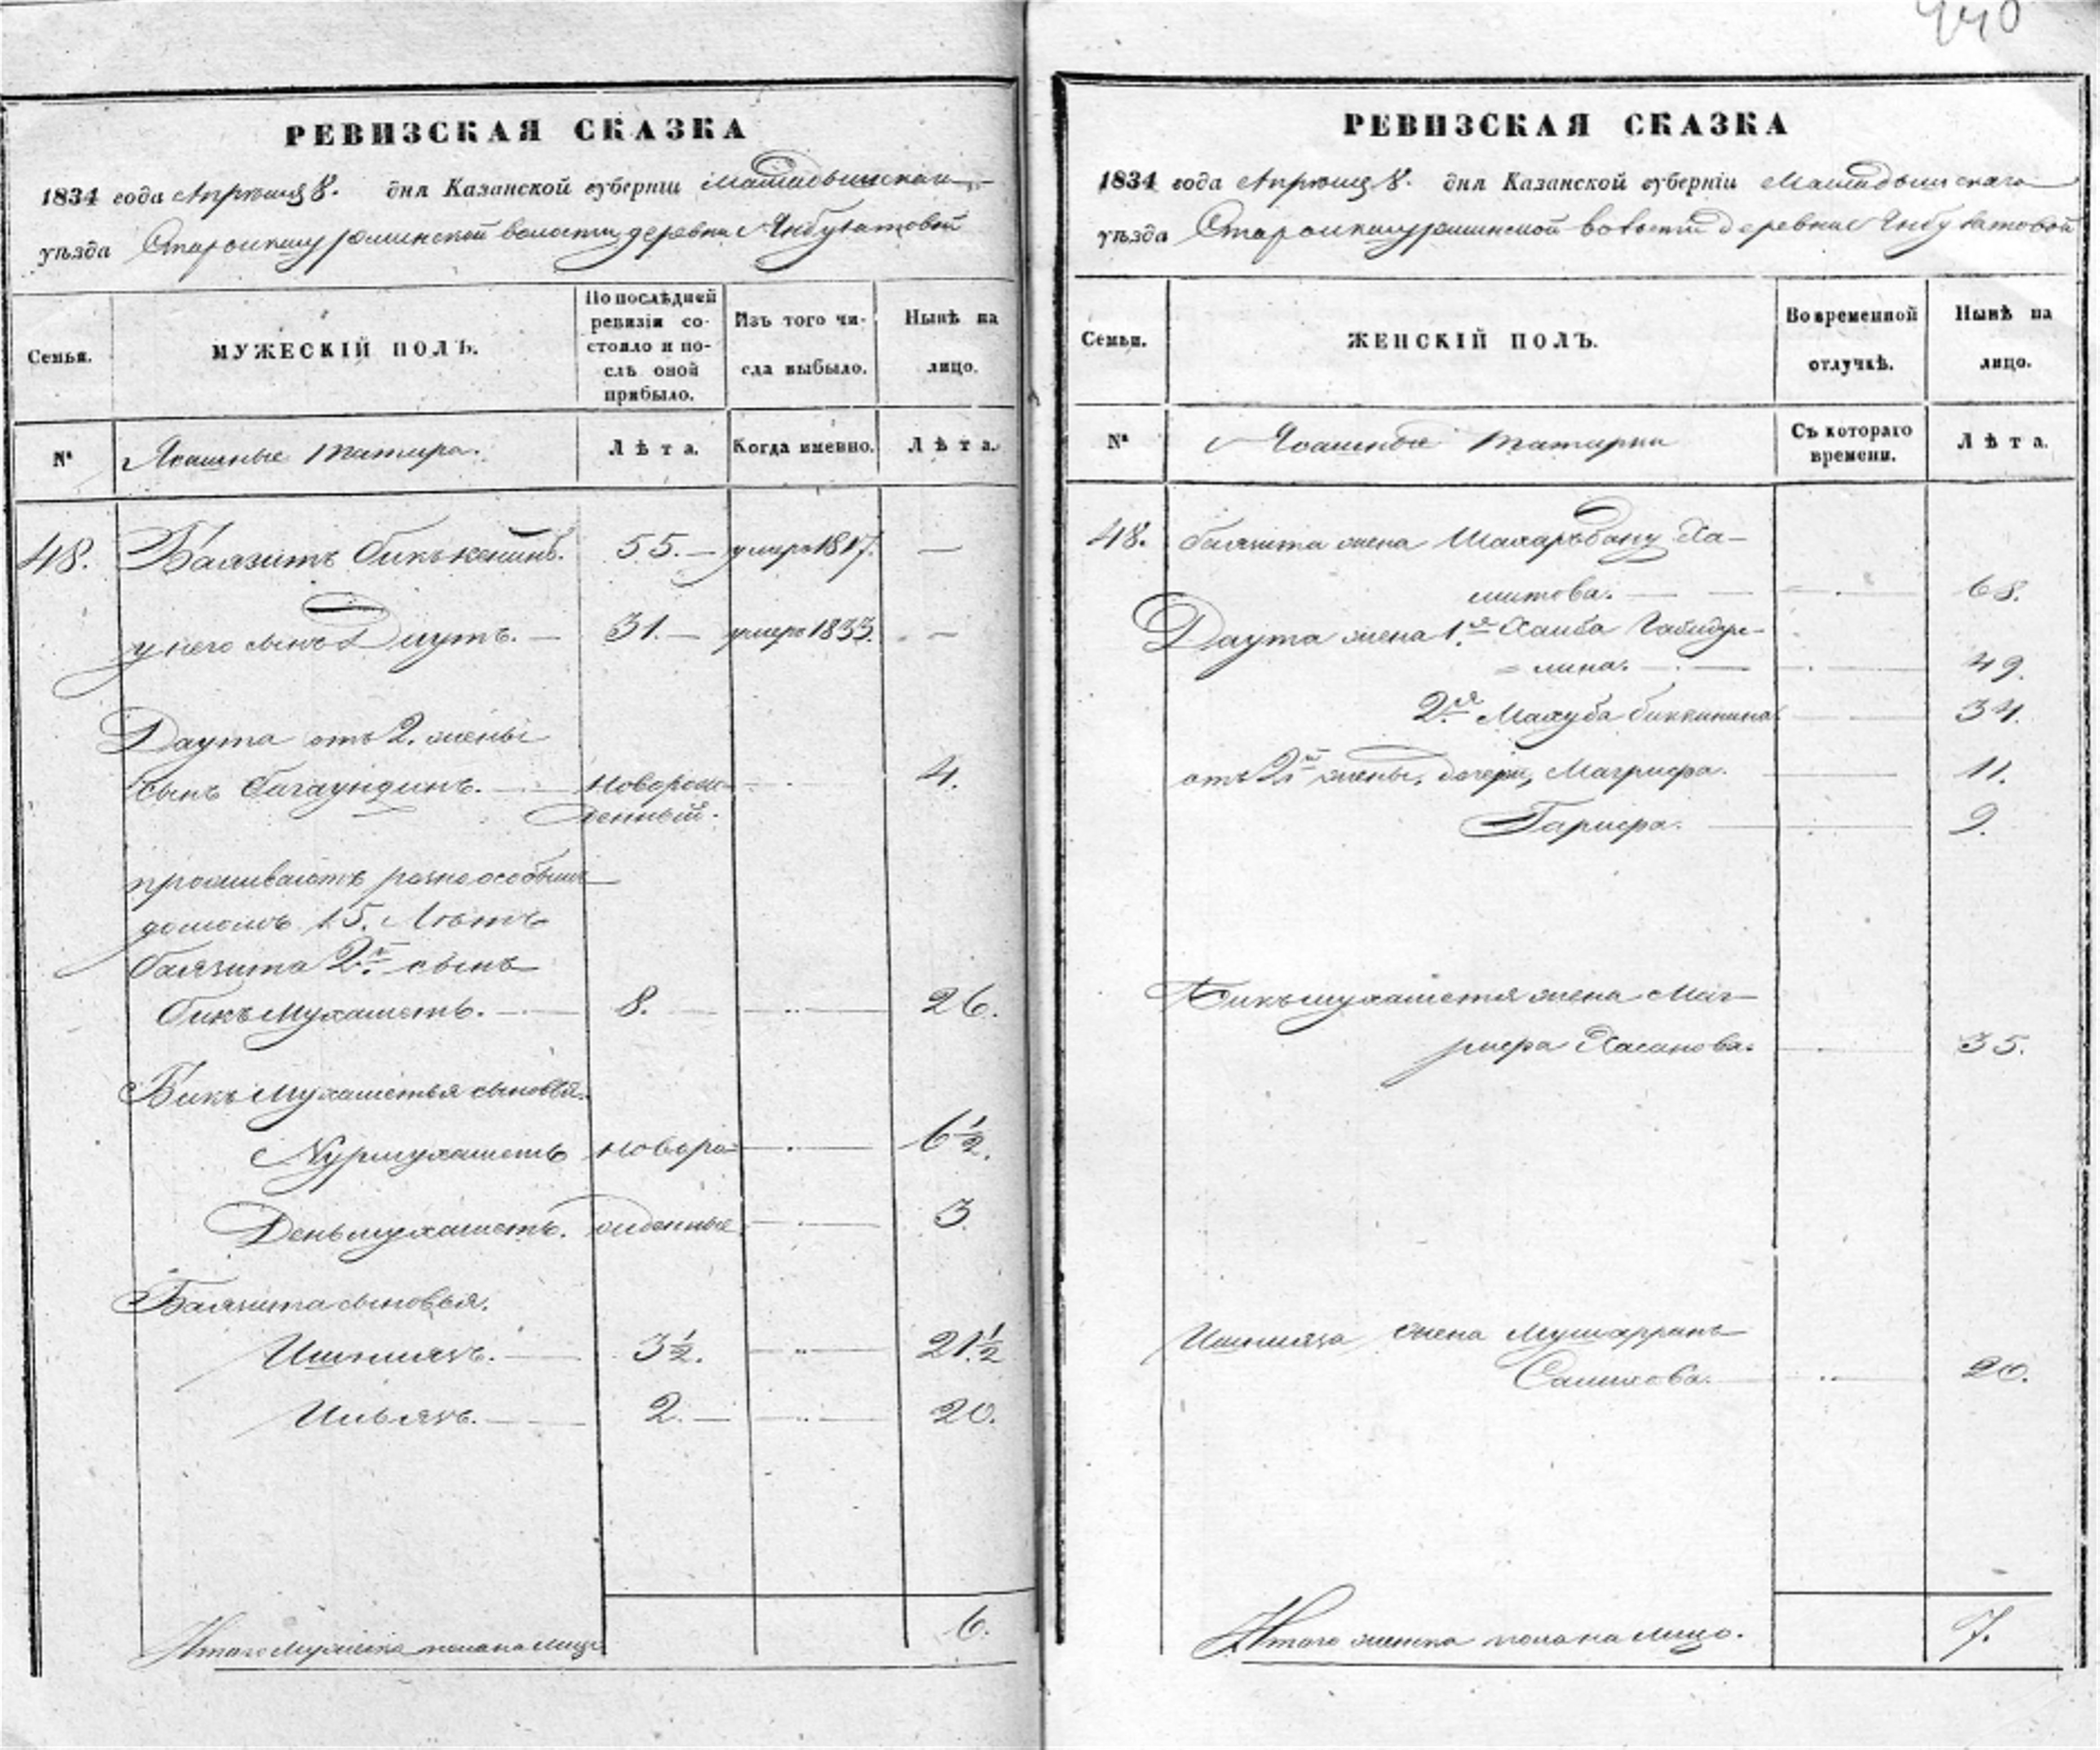 440
РЕВИЗСКАЯ СКАЗКА
1834 года Апрѣля 8. дня Казанской губерніи Мамадышскаго
уѣзда Старо деревни Янбулатовой
Семьи.
МУЖЕСКІЙ ПОЛЪ.
По послѣдней ревизіи состояло и послѣ оной прибыло.
Изъ того числа выбыло.
Нынѣ на лицо.
№
Ясашные татара.
Лѣта.
Когда именно.
Лѣта.
48. Баязитъ Бикъкенинъ. 55. — умеръ 1817. —
у него сынъ Даутъ. — 31. — умеръ 1833. —
Даута отъ 2. жены
сынъ Багаундинъ. — новорож- 4.
денный.
проживаютъ розно особымъ
домомъ 15. Лѣтъ
Баязита 2й сынъ
Бикъ Мухаметь. — 8. — 26.
Бикъ Мухаметья сыновья.
Нурмухаметь новоро- 6½.
Деньмухаметь. жденные 3.
Баязита сыновья.
Ишніязъ. — 3½. — 21½
Ильязъ. — 2. — 20.
Итого мужеска пола на лицо 6.
РЕВИЗСКАЯ СКАЗКА
1834 года Апрѣля 8. дня Казанской губерніи Мамадышскаго
уѣзда волости деревни Янбулатовой
Семьи.
ЖЕНСКІЙ ПОЛЪ.
Во временной отлучкѣ.
Нынѣ на лицо.
№
Ясашныя татарки
Съ котораго времени.
Лѣта.
48. Баязита жена Шахаръбану Ха-
митова. — 68.
Даута жена 1я Хаиба Габиду-
лина. — 49.
2я Махуба Биккинина 34.
отъ 2й жены, дочери, Магрифа. 11.
Гарифа. — 9.
Бикъмухаметя жена Маг-
рифа Хасанова. 35.
Ишніяза жена Мушарряпъ
Салихова. 20.
Итого женска пола на лицо. 7.